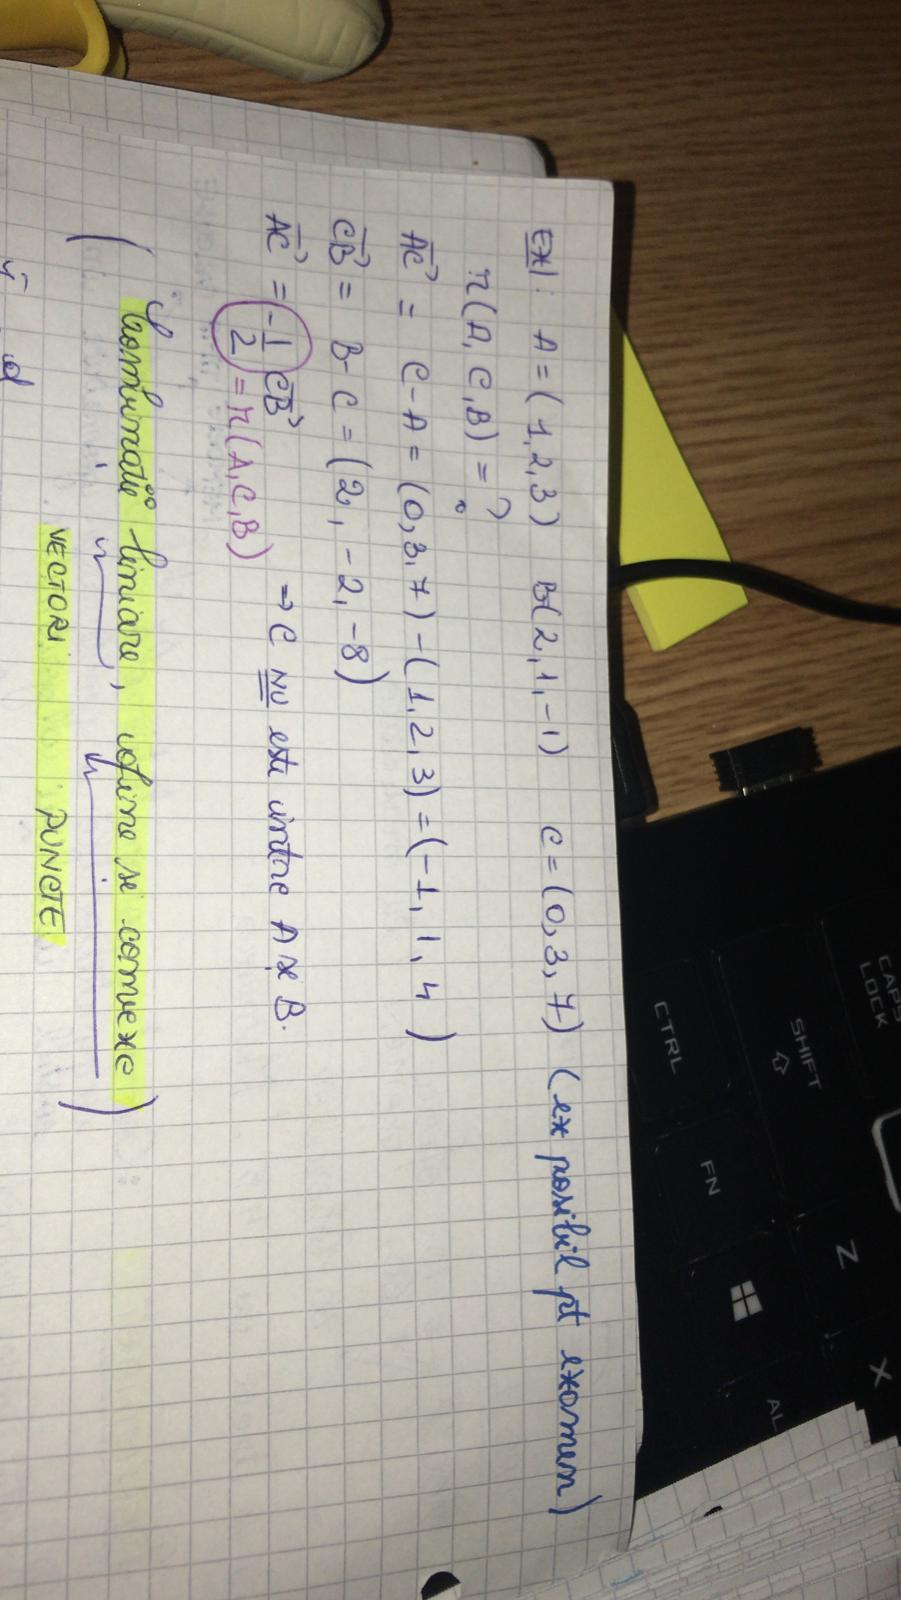 CAPS
LOCK
SHIFT
Z
X
CTRL
FN
AL
EX1: A=(1,2,3) B(2,1,-1) C=(0,3,7) (ex posibil pt examen)
r(A,C,B) = ?
AC = C-A = (0,3,7)-(1,2,3)=(-1,1,4)
CB = B-C = (2,-2,-8)
AC = -1/2 CB ⇒ C NU este între A și B.
= r(A,C,B)
(Combinații liniare, afine și convexe)
VECTORI PUNCTE